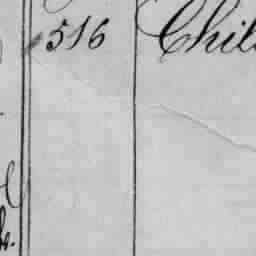 516 Chil